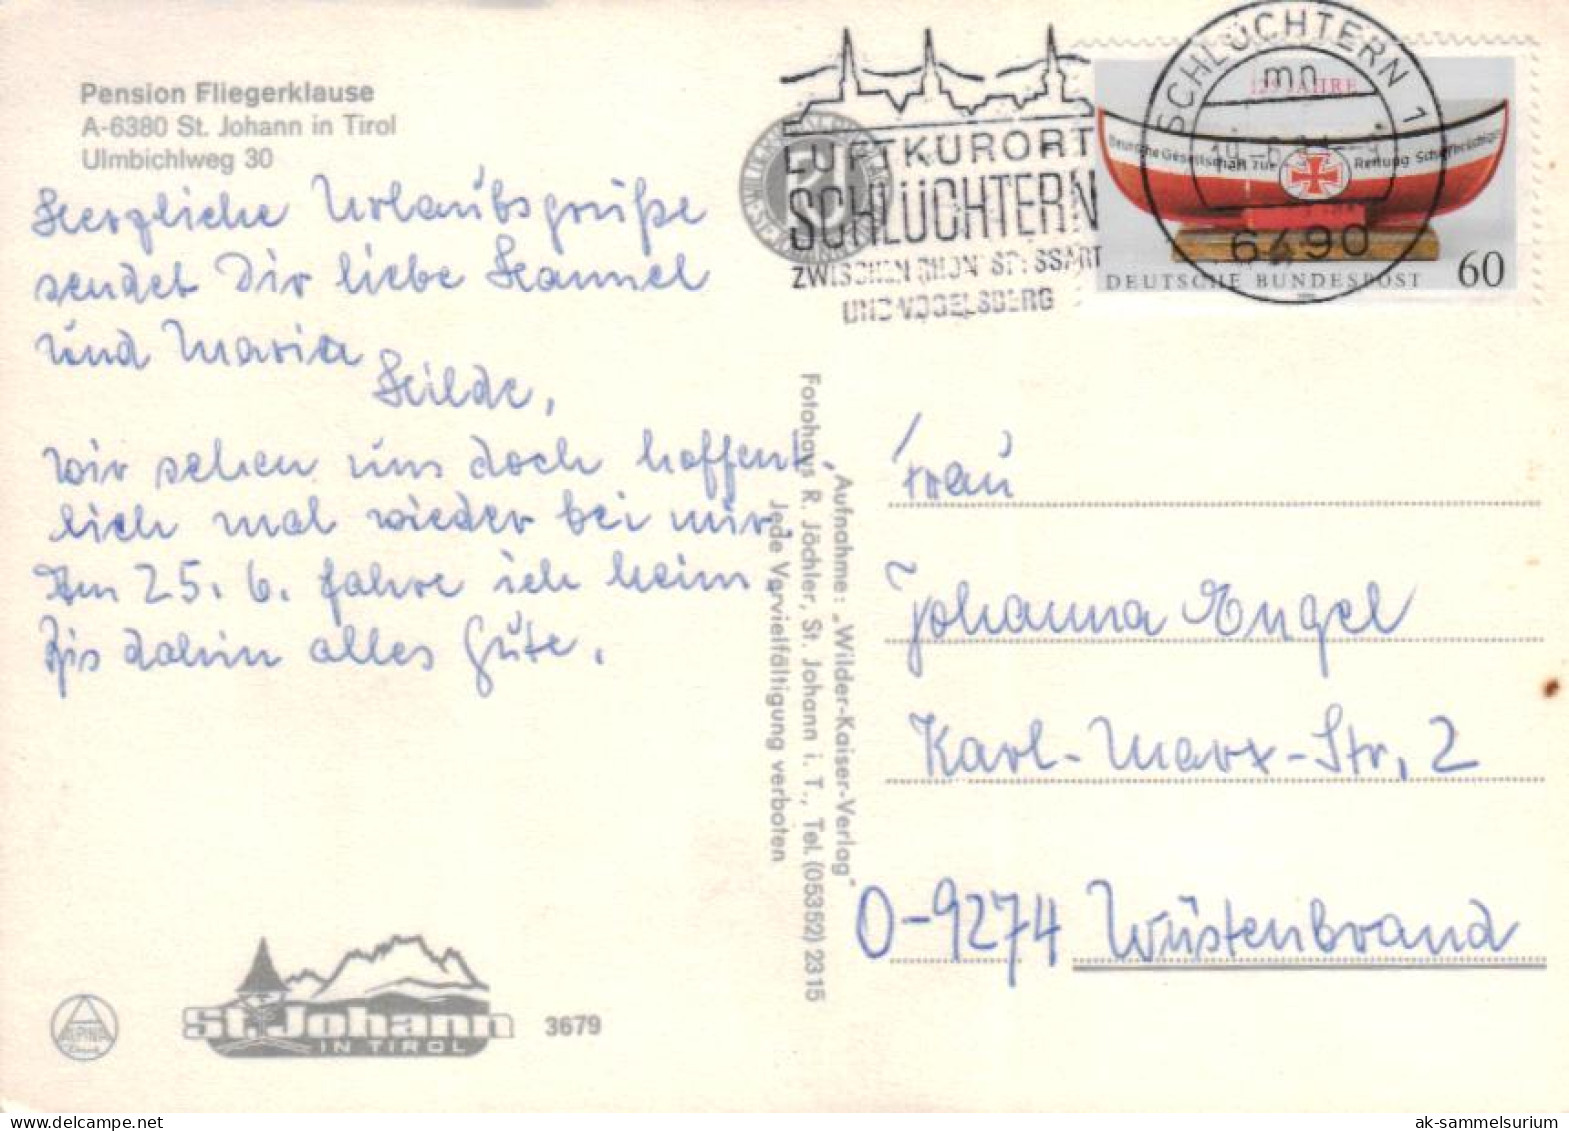 Pension Fliegerklause
A-6380 St. Johann in Tirol
Ulmbichlweg 30
Herzliche Urlaubsgrüße
sendet Dir liebe Hannel
und Maria
Hilde,
wir sehen uns doch hoffent
lich mal wieder bei mir.
Am 25. 6. fahre ich heim
Bis dahin alles Gute.
St. Johann
IN TIROL
3679
Aufnahme: „Wilder-Kaiser-Verlag"
Fotohaus R. Jöchler, St. Johann i. T., Tel. (05352) 2315
Jede Vervielfältigung verboten
LUFTKURORT
SCHLÜCHTERN
ZWISCHEN RHÖN SPESSART
UND VOGELSBERG
SCHLÜCHTERN 1
mn
6490
125 JAHRE
Deutsche Gesellschaft zur Rettung Schiffbrüchiger
DEUTSCHE BUNDESPOST 60
Frau
Johanna Engel
Karl-Marx-Str. 2
O-9274 Wüstenbrand
ak-sammelsurium